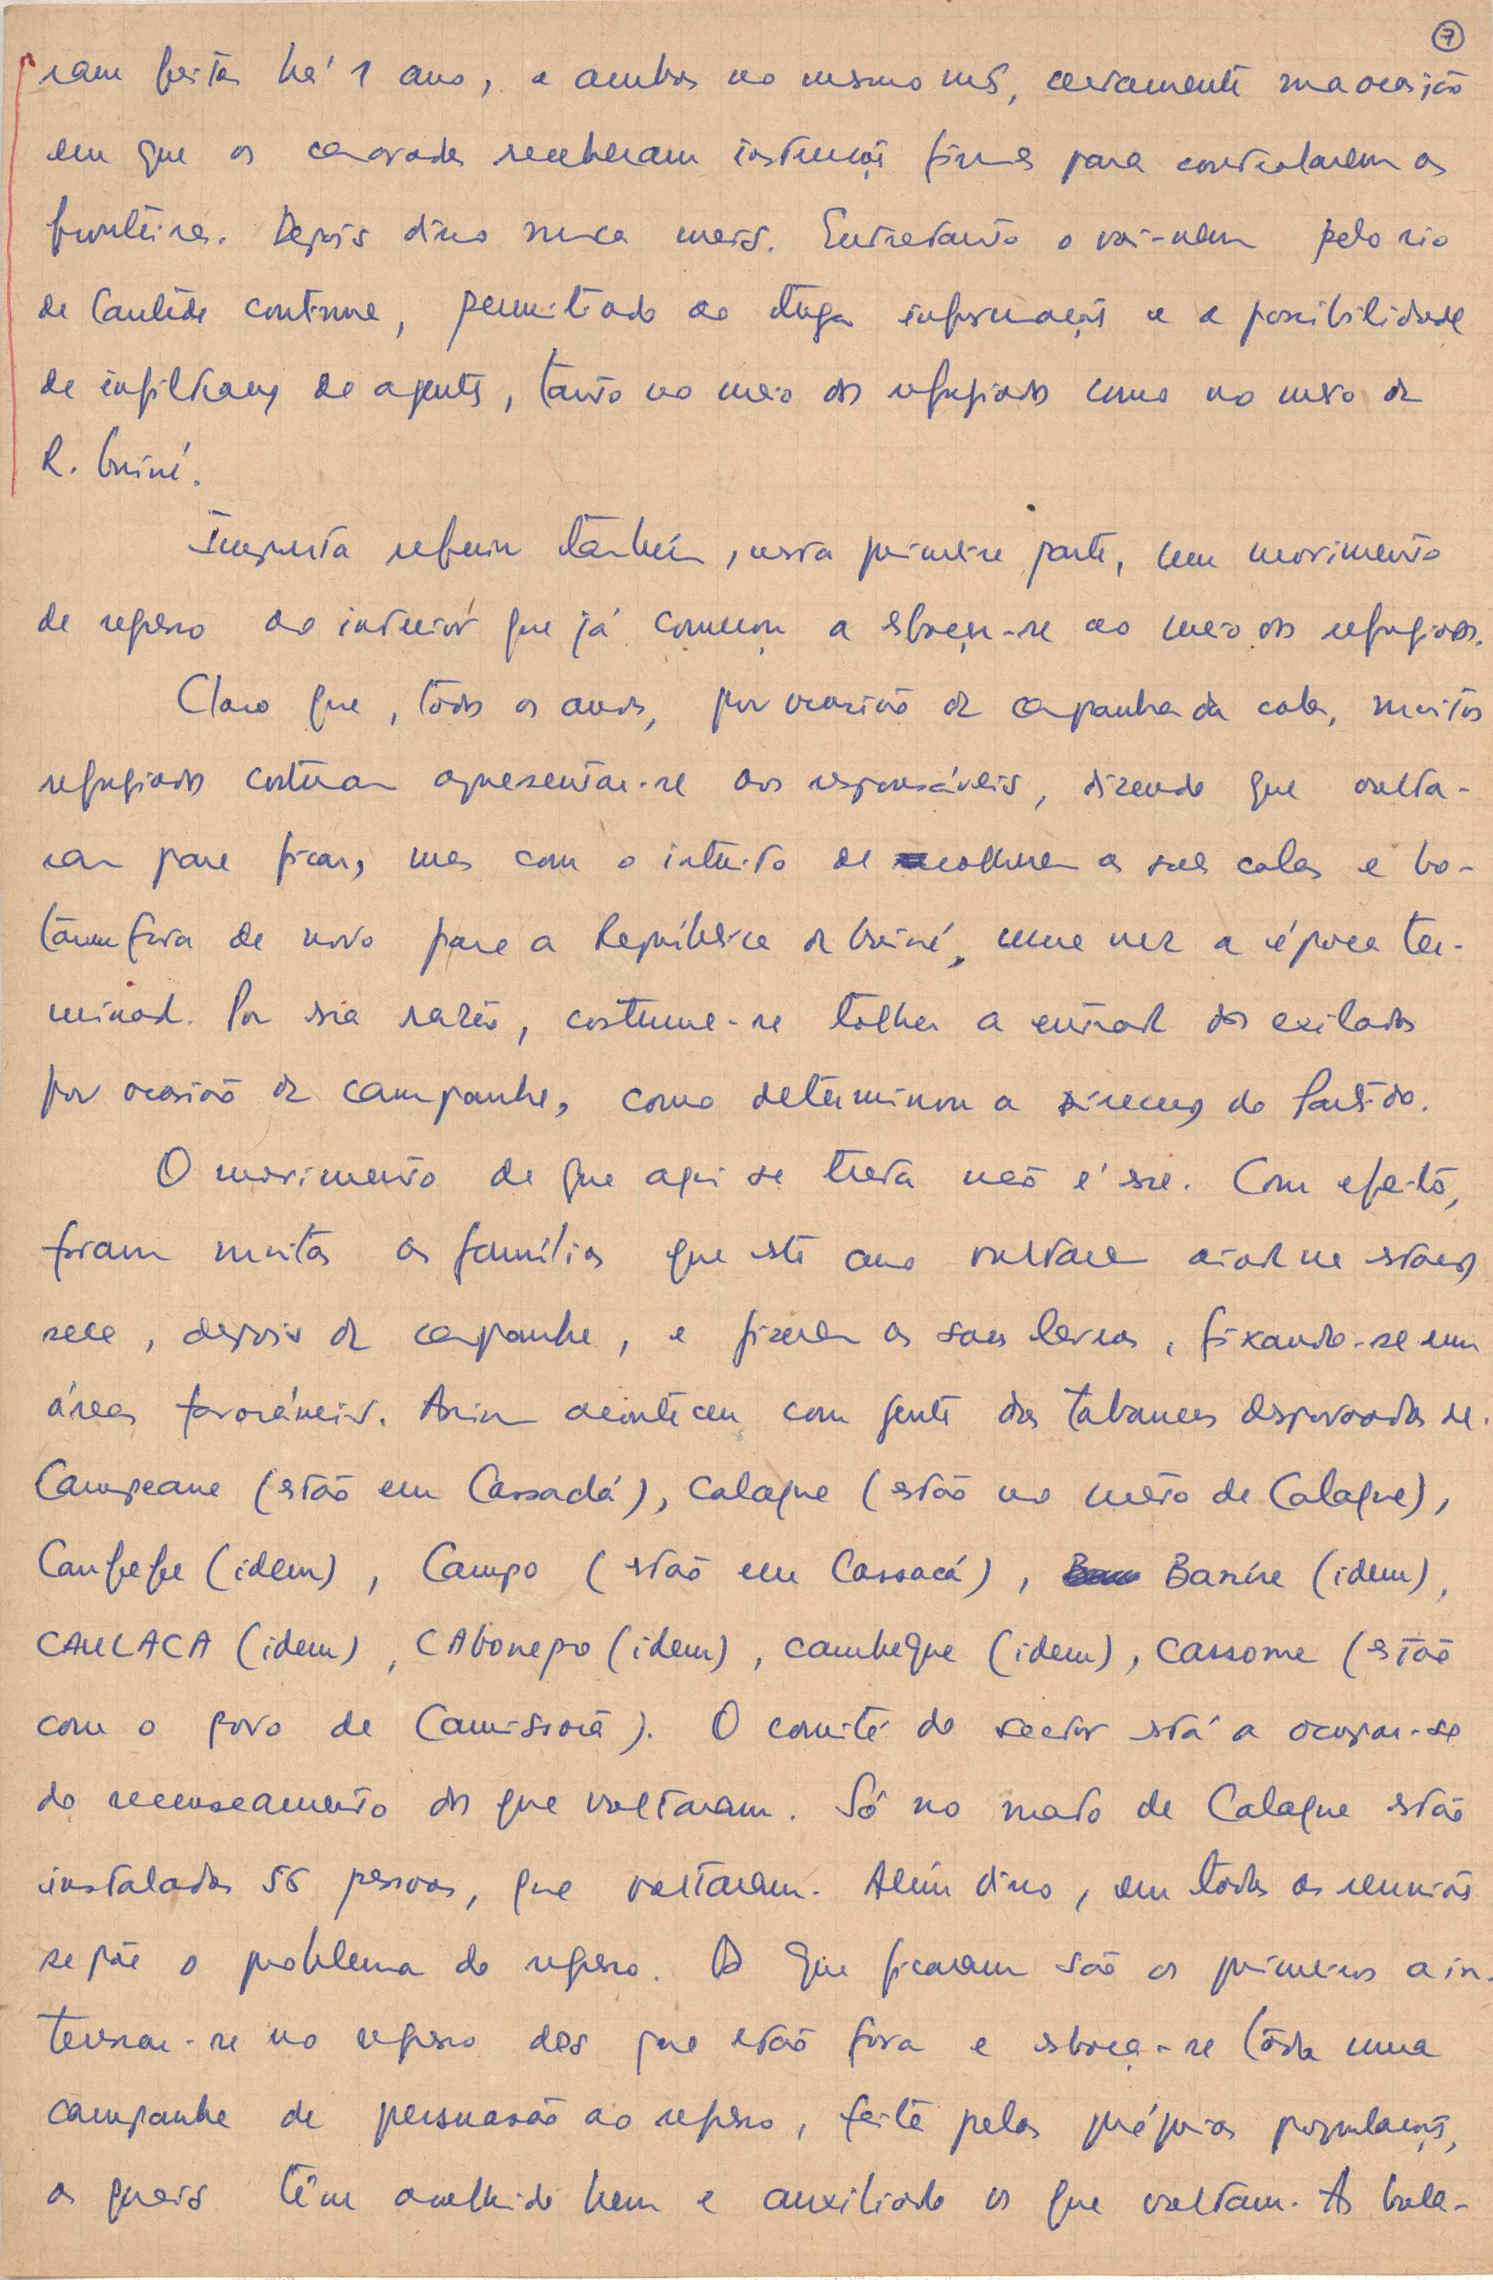 7
ram feitas há 1 ano, e ambas no mesmo mês, certamente na ocasião
em que os camaradas receberam instruções firmes para controlarem as
fronteiras. Depois disso nunca mais. Entretanto o vai-vem pelo rio
de continua, permitindo ao tuga informações e a possibilidade
de infiltração de agentes, tanto no meio dos refugiados como no meio da
R. Guiné.
Importa referir também, nesta primeira parte, um movimento
de regresso ao interior que já começou a esboçar-se ao meio dos refugiados.
Claro que, todos os anos, por ocasião da campanha da cola, muitos
refugiados costumam apresentar-se aos responsáveis, dizendo que volta-
ram para ficar, mas com o intuito de colherem as suas colas e vo-
tarem fora de novo para a República da Guiné, uma vez a época ter-
minada. Por essa razão, costuma-se tolher a entrada dos exilados
por ocasião da campanha, como determinou a direcção do Partido.
O movimento de que aqui se trata não é esse. Com efeito,
foram muitas as famílias que este ano voltaram ainda na estação
seca, depois da campanha, e fizeram as suas lavras, fixando-se em
áreas favoráveis. Assim aconteceu com gente das tabancas despovoadas de
Campeane (estão em Cassacá), Calaque (estão no mato de Calaque),
Canfefe (idem), Campo (estão em Cassacá), Banire (idem),
CAULACA (idem), CAbonepo (idem), cambeque (idem), Cassome (estão
com o povo de Camissorã). O comité do sector está a ocupar-se
do recenseamento dos que voltaram. Só no mato de Calaque estão
instaladas 56 pessoas, que voltaram. Além disso, em todas as reuniões
se põe o problema do regresso. Os que ficaram são os primeiros a in-
teressar-se no regresso dos que estão fora e esboça-se toda uma
campanha de persuasão ao regresso, feita pelas próprias populações,
as quais têm acolhido bem e auxiliado os que voltam. As bola-